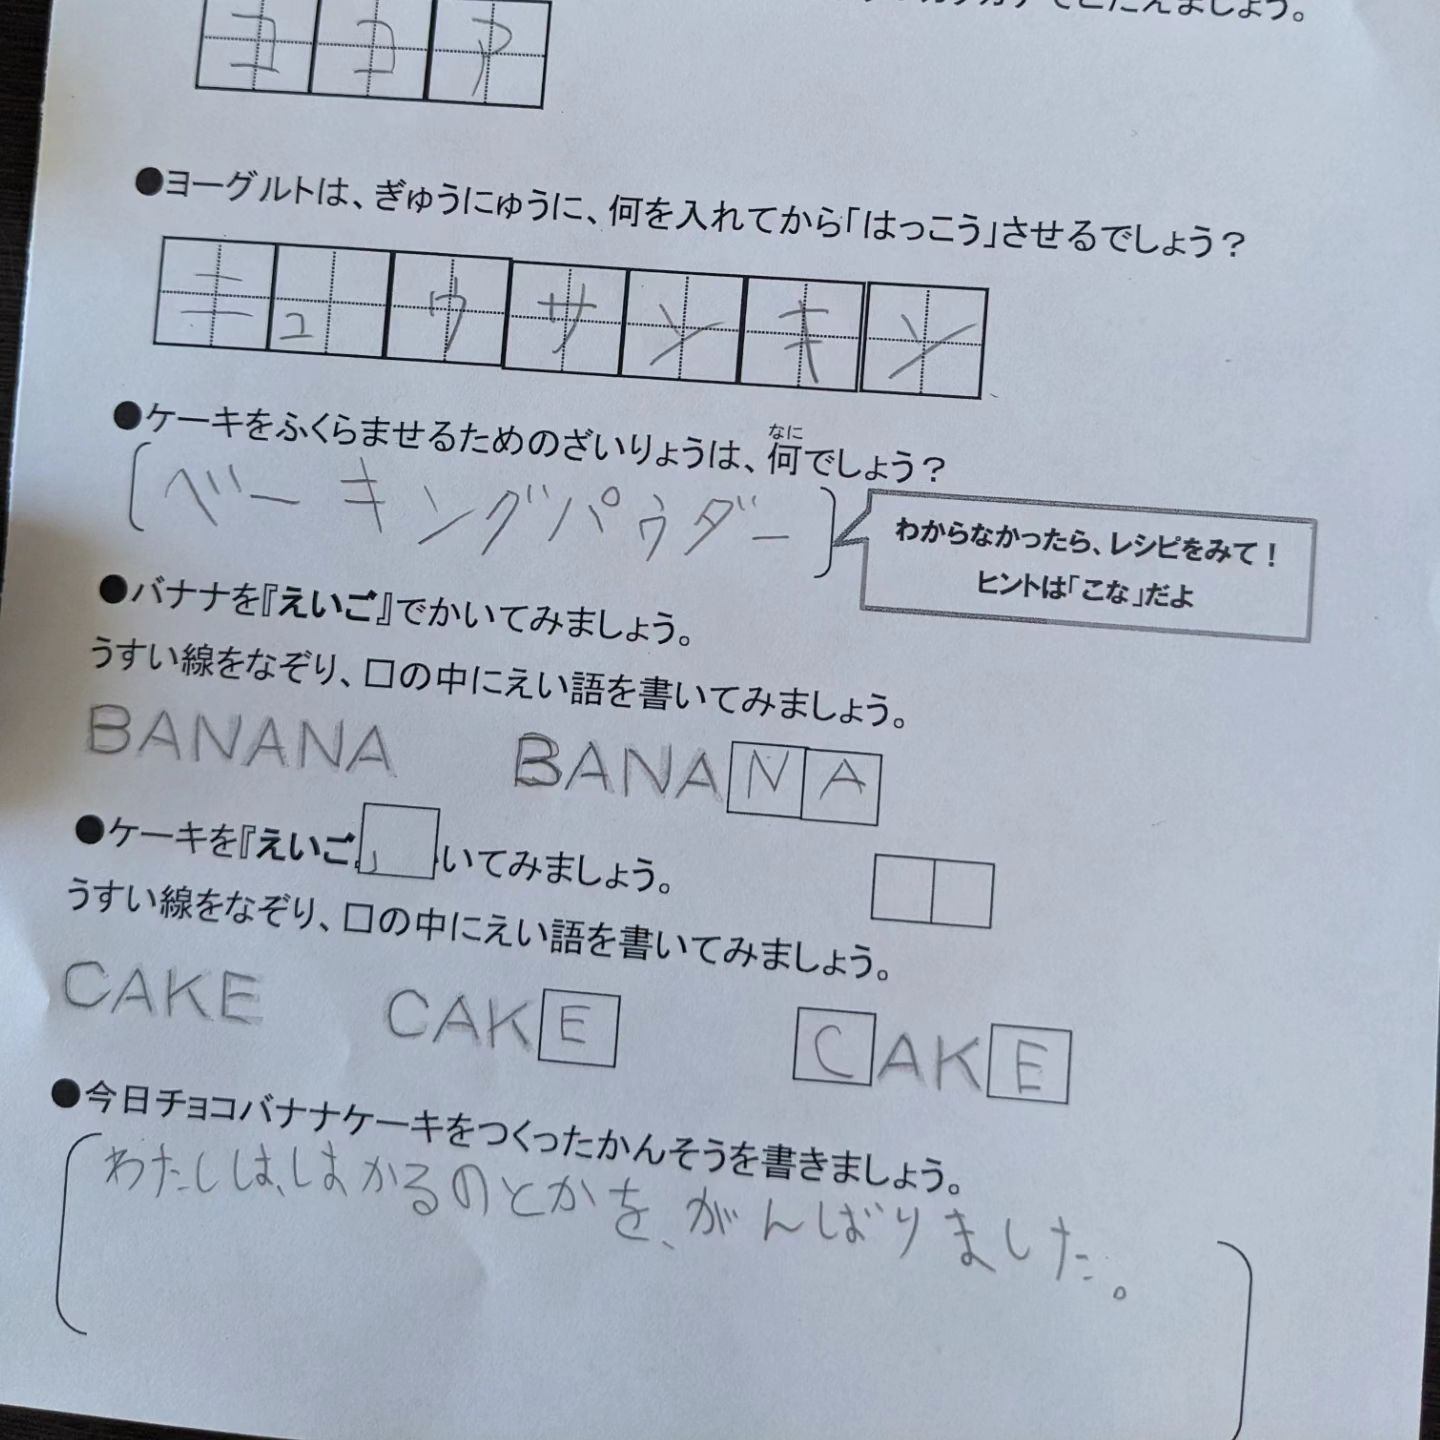 でこたえましょう。
ココア
●ヨーグルトは、ぎゅうにゅうに、何を入れてから「はっこう」させるでしょう？
ニュウサンキン
●ケーキをふくらませるためのざいりょうは、何でしょう？
なに
ベーキングパウダー
わからなかったら、レシピをみて！
ヒントは「こな」だよ
●バナナを『えいご』でかいてみましょう。
うすい線をなぞり、口の中にえい語を書いてみましょう。
BANANA BANANA
●ケーキを『えいご』いてみましょう。
うすい線をなぞり、口の中にえい語を書いてみましょう。
CAKE CAKE CAKE
●今日チョコバナナケーキをつくったかんそうを書きましょう。
わたしは、はかるのとかを、がんばりました。